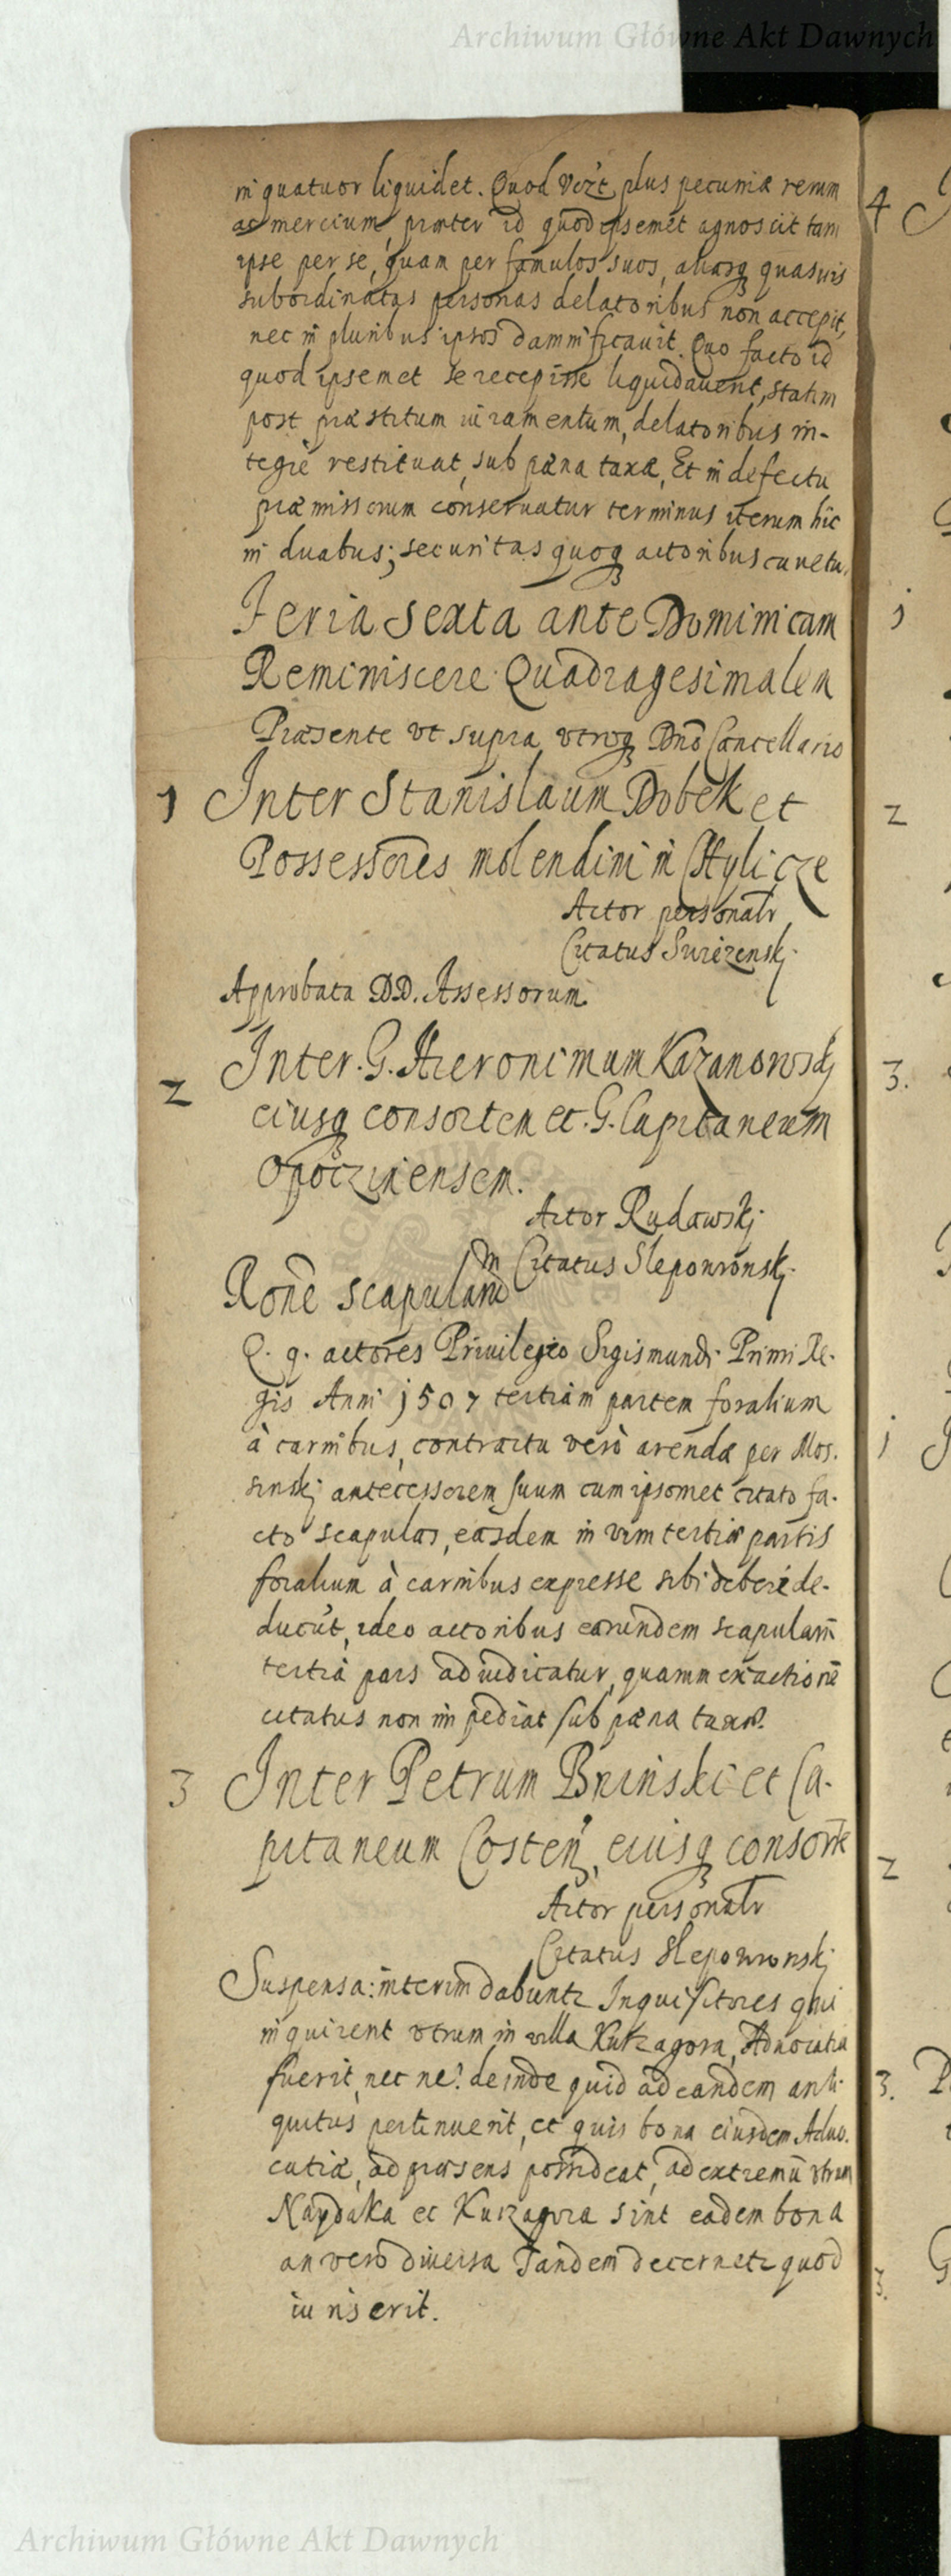 Archiwum Główne Akt Dawnych
in quatuor liquidet. Quod vert plus pecuniæ rerum
ac mercium, præter id quod ipsemet agnoscit tam
ipse per se, quam per famulos suos, aliasq quasuis
subordinatas personas delatoribus non accepit,
nec in pluribus ipsos damnificauit. Quo facto id
quod ipsemet se recepisse liquidauerit, statim
post præstitum iuramentum, delatoribus in-
tegrè restituat, sub pæna taxæ, Et in defectu
præmissorum conseruatur terminus iterum hic
in duabus; securitas quoq actoribus cauetu.
Feria Sexta ante Dominicam
Reminiscere Quadragesimalem
Præsente vt supra vtroq Dnō Cancellario
1 Inter Stanislaum Dobek et
Possessores molendini in Chylicze
Actor personalr
Citatus Swiezenskj.
Approbata DD. Assessorum.
2 Inter. G. Hieronimum Kazanowskj
eiusq consortem et. G. Capitaneum
Opoczinensem.
Actor Rudawskj.
Citatus Slepowronskj.
Rone scapularum
Q. q. actores Priuilegio Sigismundi Primi Re-
gis Anni 1507 tertiam partem foralium
à carnibus, contractu verò arendæ per Mos-
sinskj antecessorem suum cum ipsomet citato fa-
cto scapulas, easdem in vim tertiæ partis
foralium à carnibus expresse sibi deberi de-
ducūt, ideo actoribus earundem scapularū
tertia pars adiudicatur, quam in exactione
citatus non impediat sub pæna taxæ.
3 Inter Petrum Bninski et Ca-
pitaneum Costeñ, eiusq consorte
Actor personalr
Citatus Slepowronskj
Suspensa: interim dabuntr Inquisitores qui
inquirent vtrum in villa Kutzagora, Aduocatia
fuerit, nec ne? deinde quid ad eandem anti-
quitus pertinuerit, et quis bona eiusdem Aduo-
catiæ, ad præsens possideat, ad extremū vtrum
Naydaka et Kutzagora sint eadem bona
an vero diuersa Tandem decernetr quod
iuris erit.
4
j
2
3.
j
2
3.
3.
Archiwum Główne Akt Dawnych